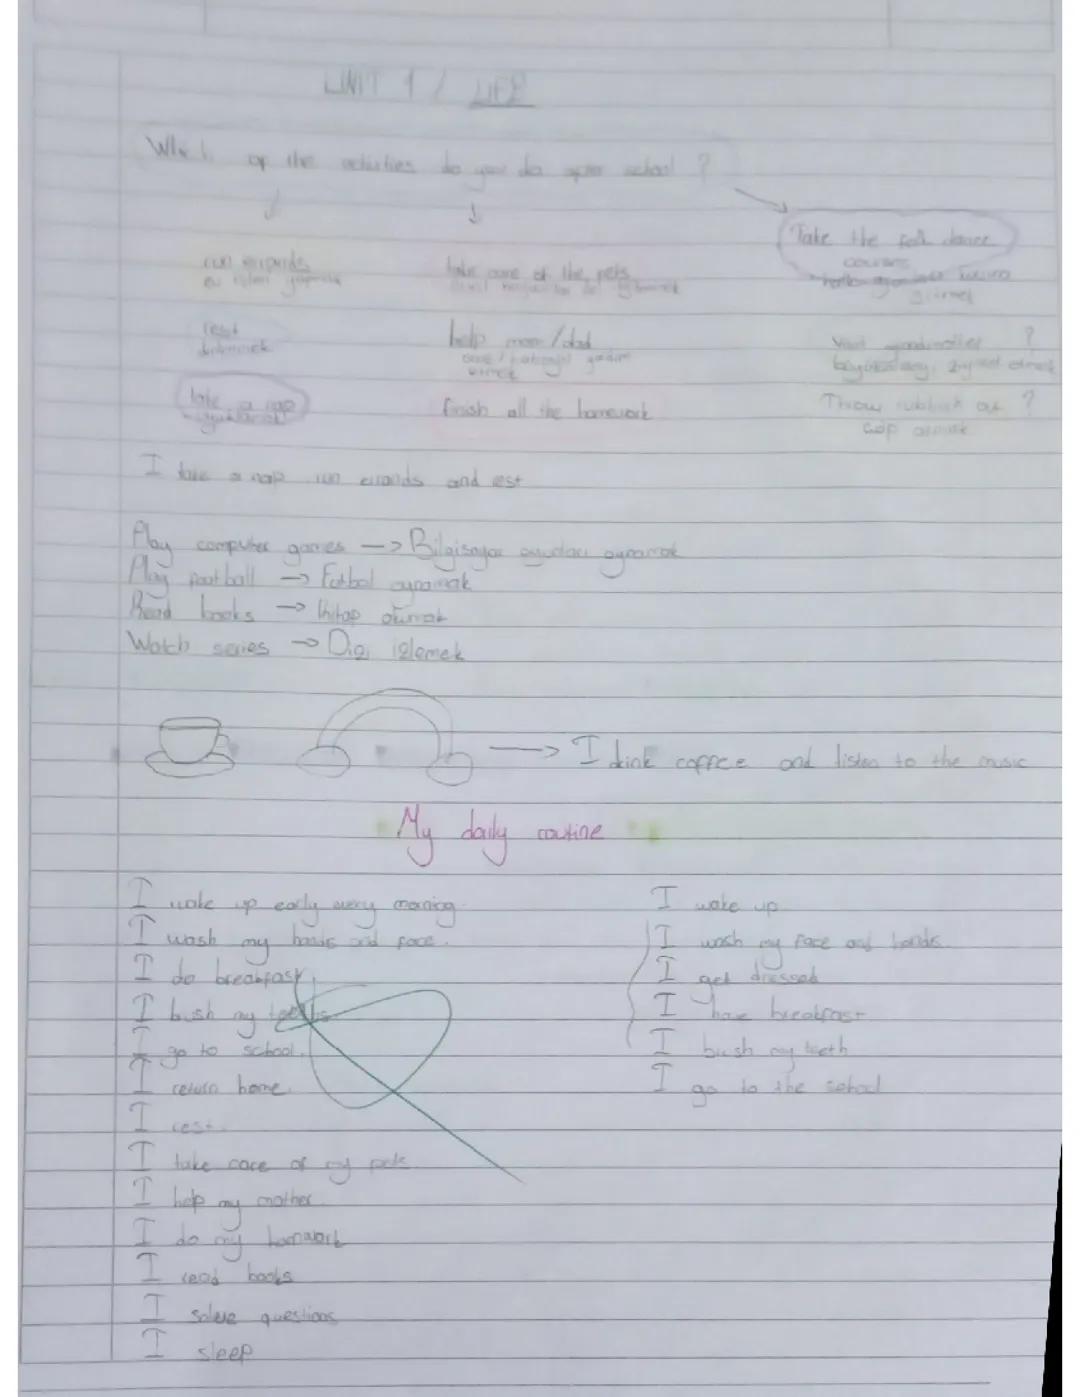 UNIT 1 / LIFE
Which of the activities do you do after school ?
run errands
ev işleri yapmak
take care of the pets
Take the folk dance
courses
rest
dinlenmek
help mom/dad
anne/babaya yardım
etmek
Visit grandmother ?
büyükanneyi ziyaret etmek
take a nap
finish all the homework
Throw rubbish out ?
çöp atmak
I take a nap run errands and rest
Play computer games -> Bilgisayar oyunları oynamak
Play football -> Futbol oynamak
Read books -> Kitap okumak
Watch series -> Dizi izlemek
-> I drink coffee and listen to the music
My daily routine
I wake up early every morning.
I wash my hands and face.
I do breakfast.
I brush my teeths
I go to school.
I return home.
I rest.
I take care of my pets
I help my mother.
I do my homework
I read books
I solve questions
I sleep
I wake up
I wash my face and hands.
I get dressed
I have breakfast
I brush my teeth
I go to the school